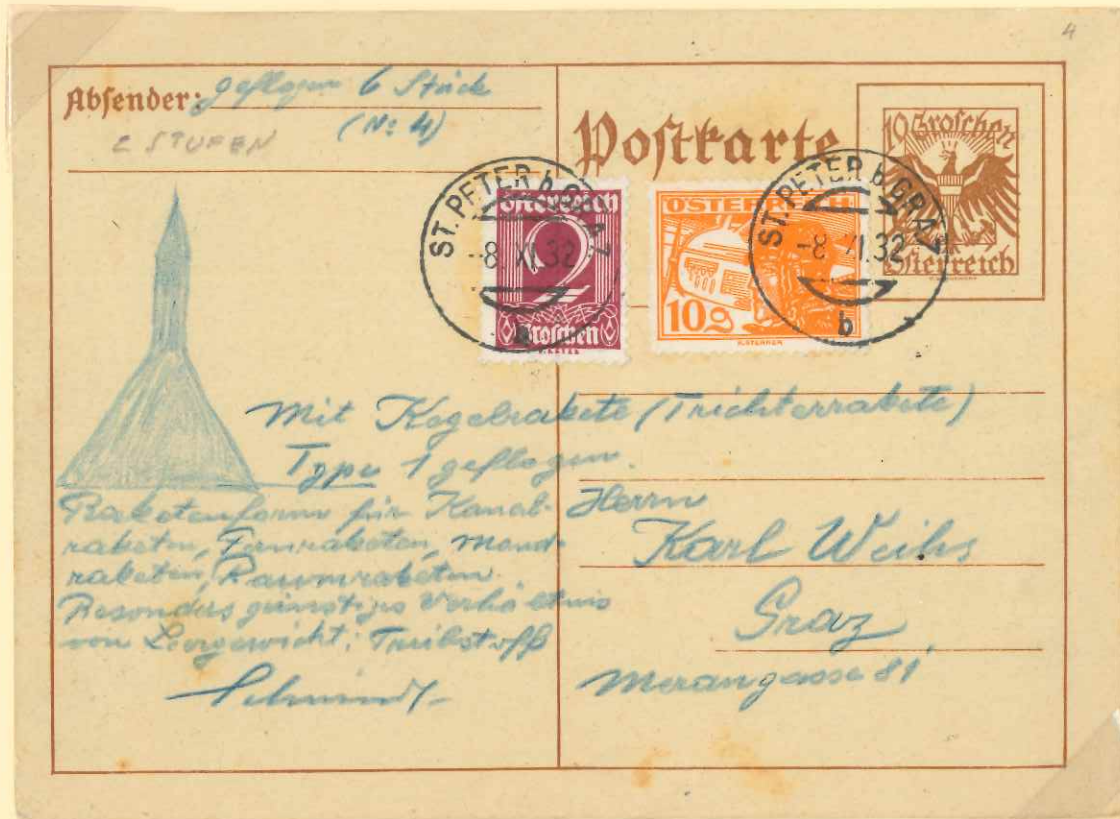 4
Absender: geflogen 6 Stück
(No: 4)
2 STUFEN
Postkarte
10 Groschen
Österreich
Österreich
2
Groschen
ÖSTERREICH
10g
ST. PETER b. GRAZ
-8. XI. 32
b
ST. PETER b. GRAZ
-8. XI. 32
b
Mit Kegelrakete (Trichterrakete)
Type 1 geflogen.
Raketenform für Kanal-
raketen, Fernraketen, Mond-
raketen, Raumraketen.
Besonders günstiges Verhältnis
von Leergewicht: Treibstoff
Schmiedl
Herrn
Karl Weihs
Graz
Merangasse 81